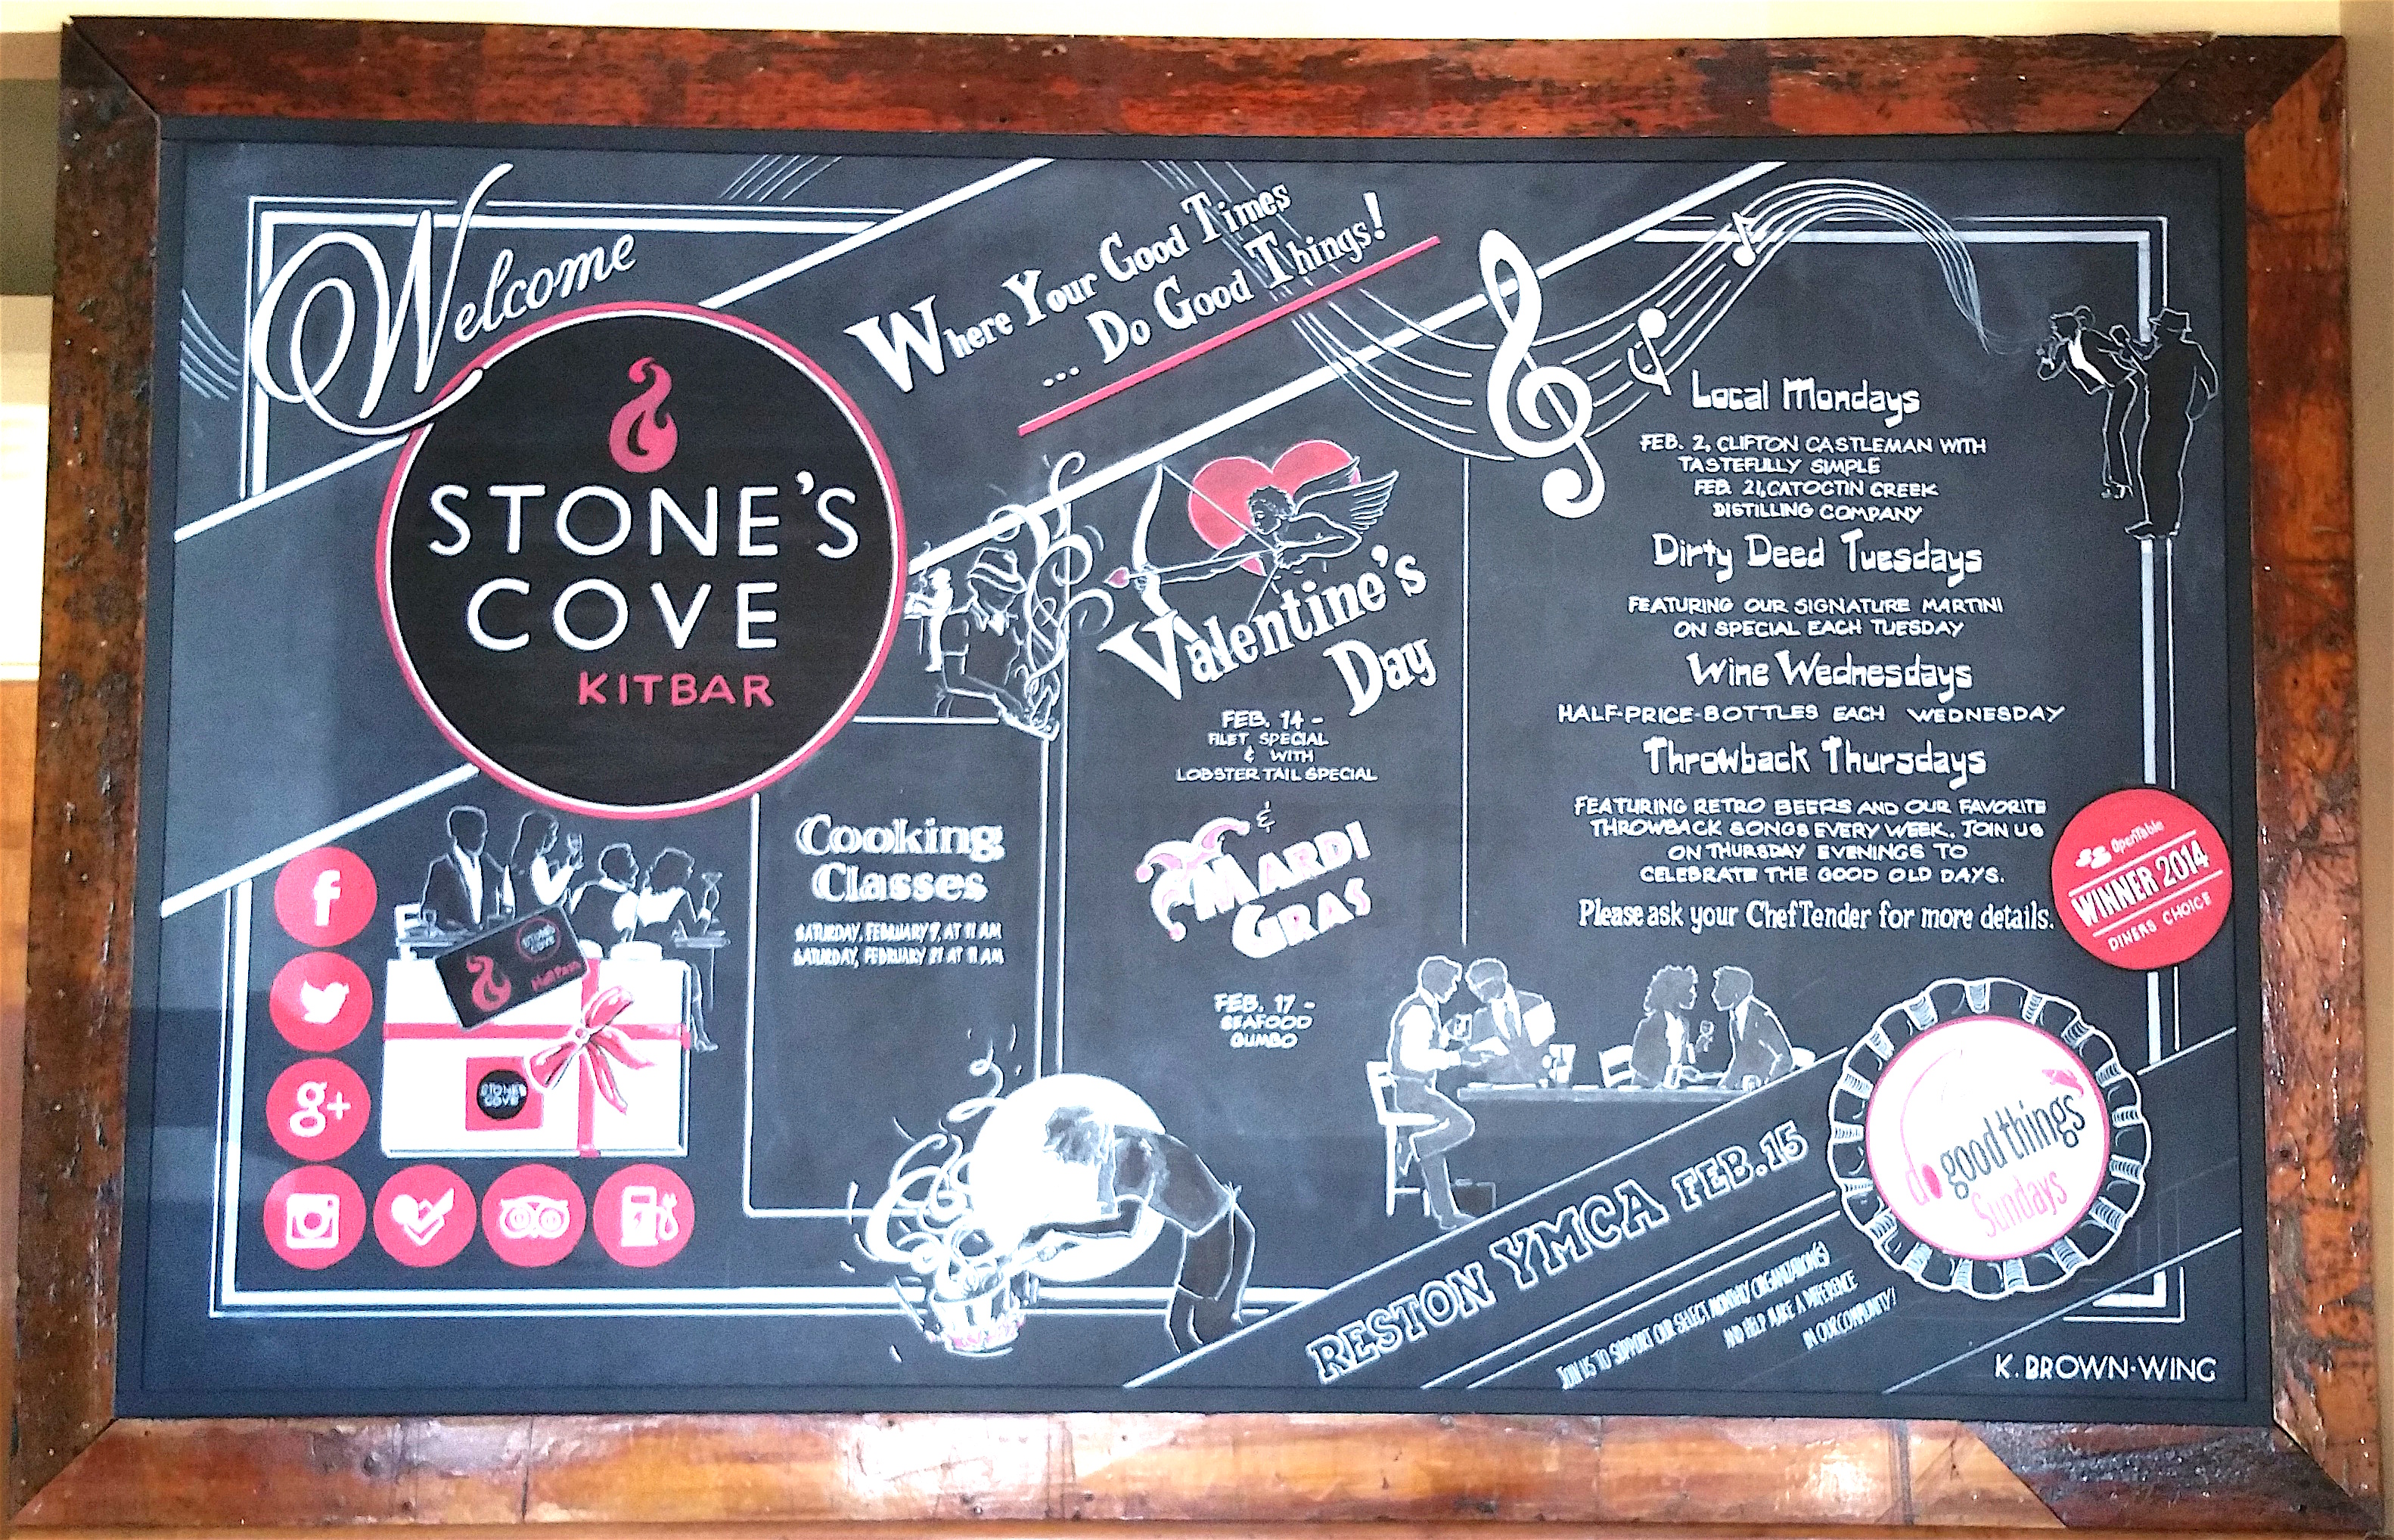 Welcome
STONE'S
COVE
KITBAR
Where Your Good Times
... Do Good Things!
Cooking
Classes
SATURDAY, FEBRUARY 7, AT 11 AM
SATURDAY, FEBRUARY 21 AT 11 AM
Valentine's
Day
FEB. 14 -
FILET SPECIAL
& WITH
LOBSTER TAIL SPECIAL
&
MARDI
GRAS
FEB. 17 -
SEAFOOD
GUMBO
Local Mondays
FEB. 2, CLIFTON CASTLEMAN WITH
TASTEFULLY SIMPLE
FEB. 21, CATOCTIN CREEK
DISTILLING COMPANY
Dirty Deed Tuesdays
FEATURING OUR SIGNATURE MARTINI
ON SPECIAL EACH TUESDAY
Wine Wednesdays
HALF-PRICE-BOTTLES EACH WEDNESDAY
Throwback Thursdays
FEATURING RETRO BEERS AND OUR FAVORITE
THROWBACK SONGS EVERY WEEK. JOIN US
ON THURSDAY EVENINGS TO
CELEBRATE THE GOOD OLD DAYS.
Please ask your ChefTender for more details.
OpenTable
WINNER 2014
DINERS CHOICE
f
g+
STONE'S
COVE
STONE'S
COVE
RESTON YMCA FEB. 15
JOIN US TO SUPPORT OUR SELECT MONTHLY ORGANIZATION(S)
AND HELP MAKE A DIFFERENCE
IN OUR COMMUNITY!
do good things
Sundays
K. BROWN-WING